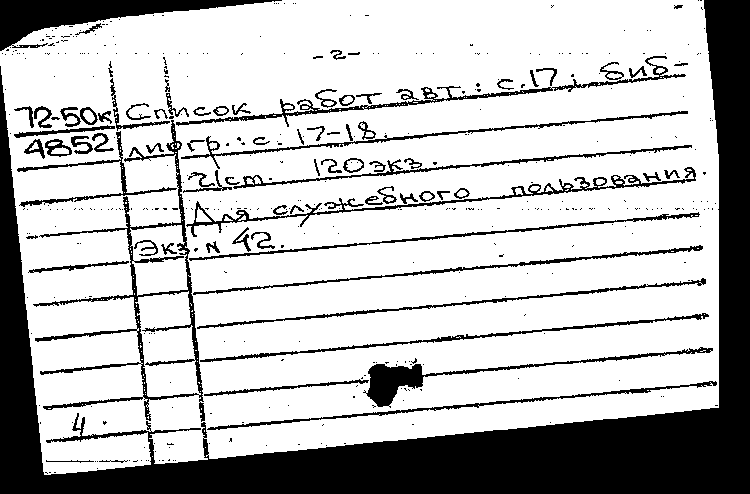 -2-
72-50к Список работ авт.: с.17; биб-
4852 лиогр.: с. 17-18.
21ст. 120экз.
Для служебного пользования.
Экз. N 42.
4.